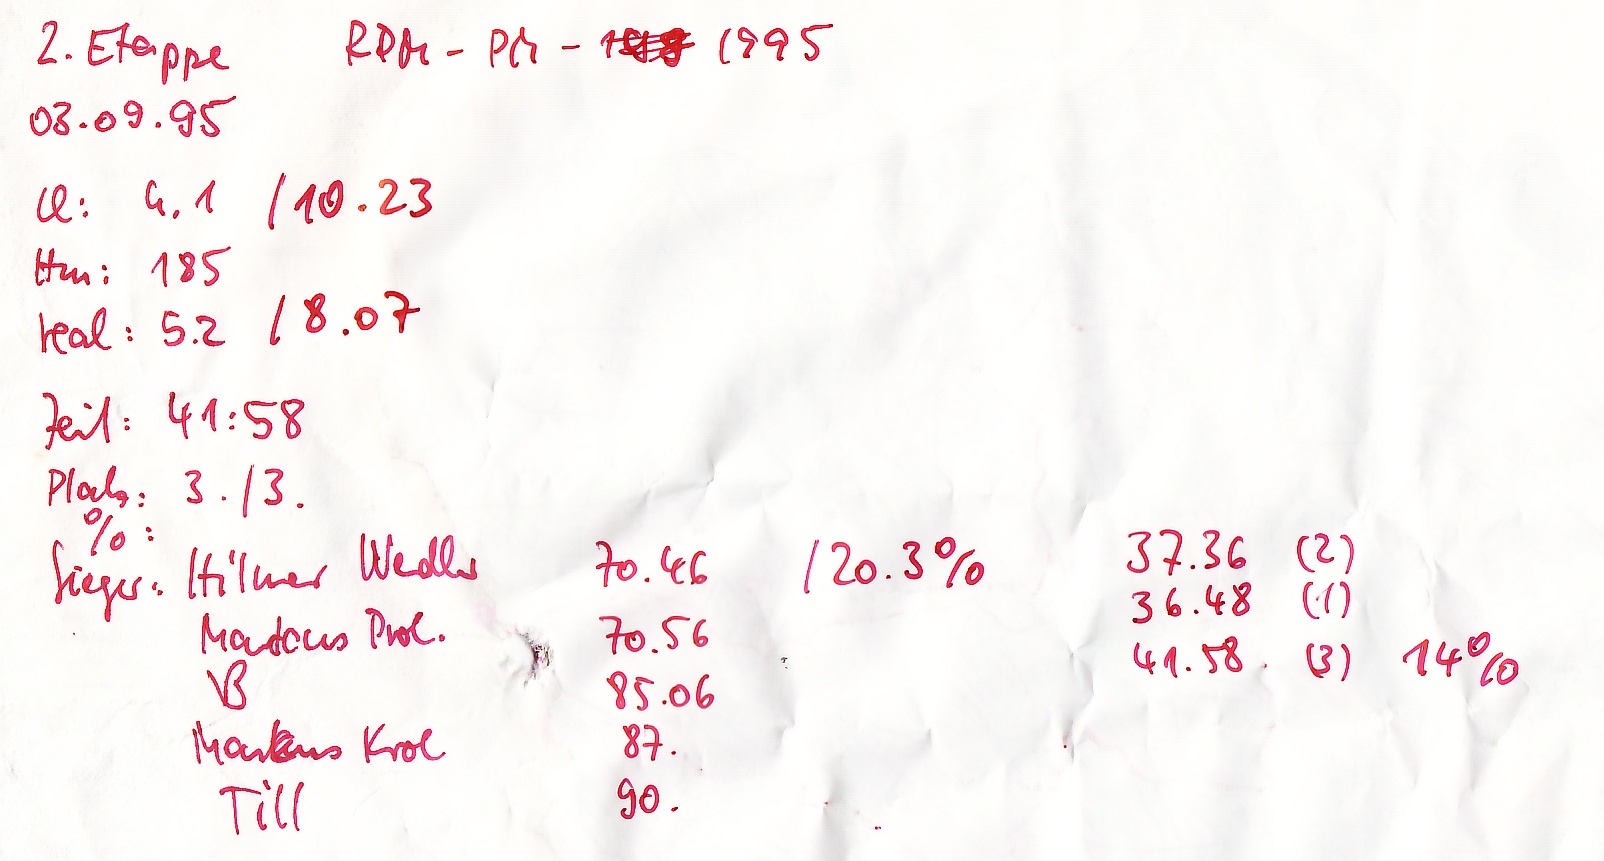 2. Etappe RDM - PM - 1995
03.09.95
Cl: 4.1 /10.23
Hm: 185
real: 5.2 /8.07
Zeit: 41:58
Platz: 3./3.
%:
Sieger: Hilmer Wedler 70.46 /20.3% 37.36 (2)
Markus Prol. 70.56 36.48 (1)
B 85.06 41.58. (3) 14%
Markus Krol 87.
Till 90.